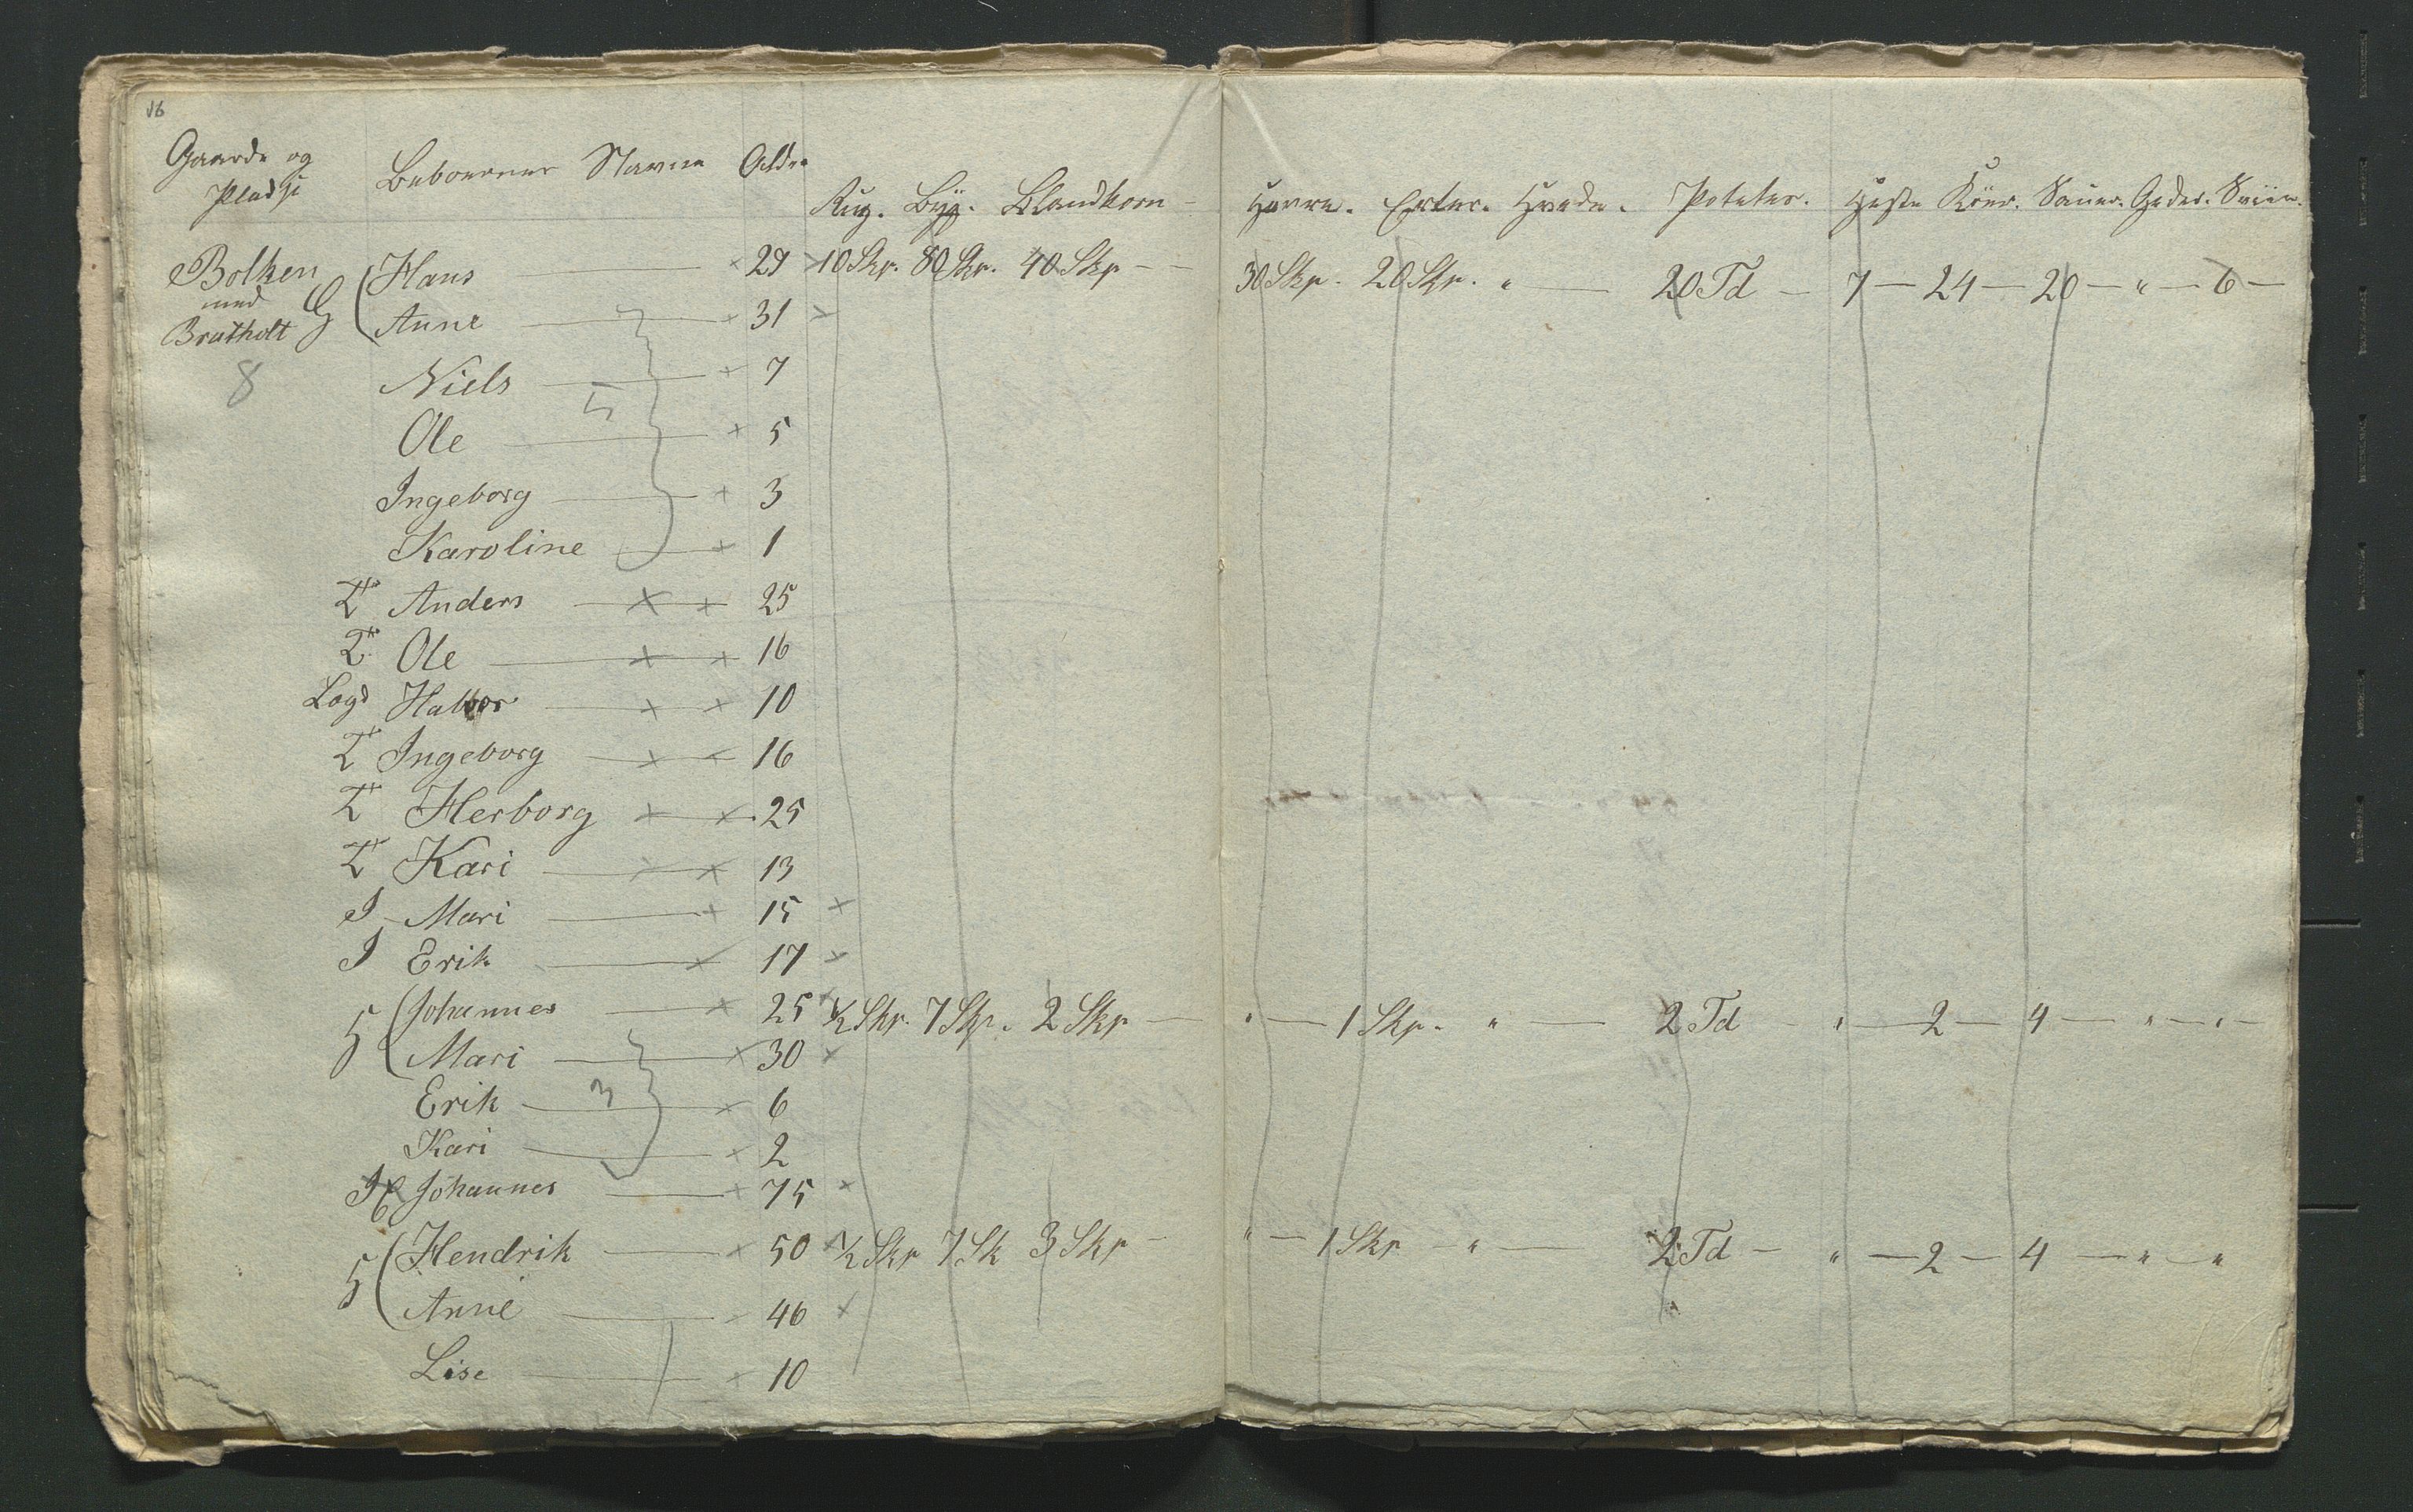 16
Gaarde og Pladse Beboernes Navne Alder Rug. Byg. Blandkorn Havre. Erter. Hvede. Poteter. Heste Köer. Sauer. Geder. Sviin.
Bolken med Bratholt G Hans 29 10 Skp. 80 Skp. 40 Skp 30 Skp. 20 Skp. " 20 Td 7 24 20 " 6
Anne 31
8 Niels 7
5
Ole 5
Ingeborg 3
Karoline 1
T Anders 25
T Ole 16
Lægd Halvor 10
T Ingeborg 16
T Herborg 25
T Kari 13
I Mari 15
I Erik 17
H Johannes 25 ½ Skp. 7 Skp. 2 Skp " 1 Skp. " 2 Td " 2 4 " "
Mari 30
3
Erik 6
Kari 2
Johannes 75
H Hendrik 50 ½ Skp 7 Sk 3 Skp " 1 Skp " 2 Td " 2 4 " "
Anne 46
Lise 10